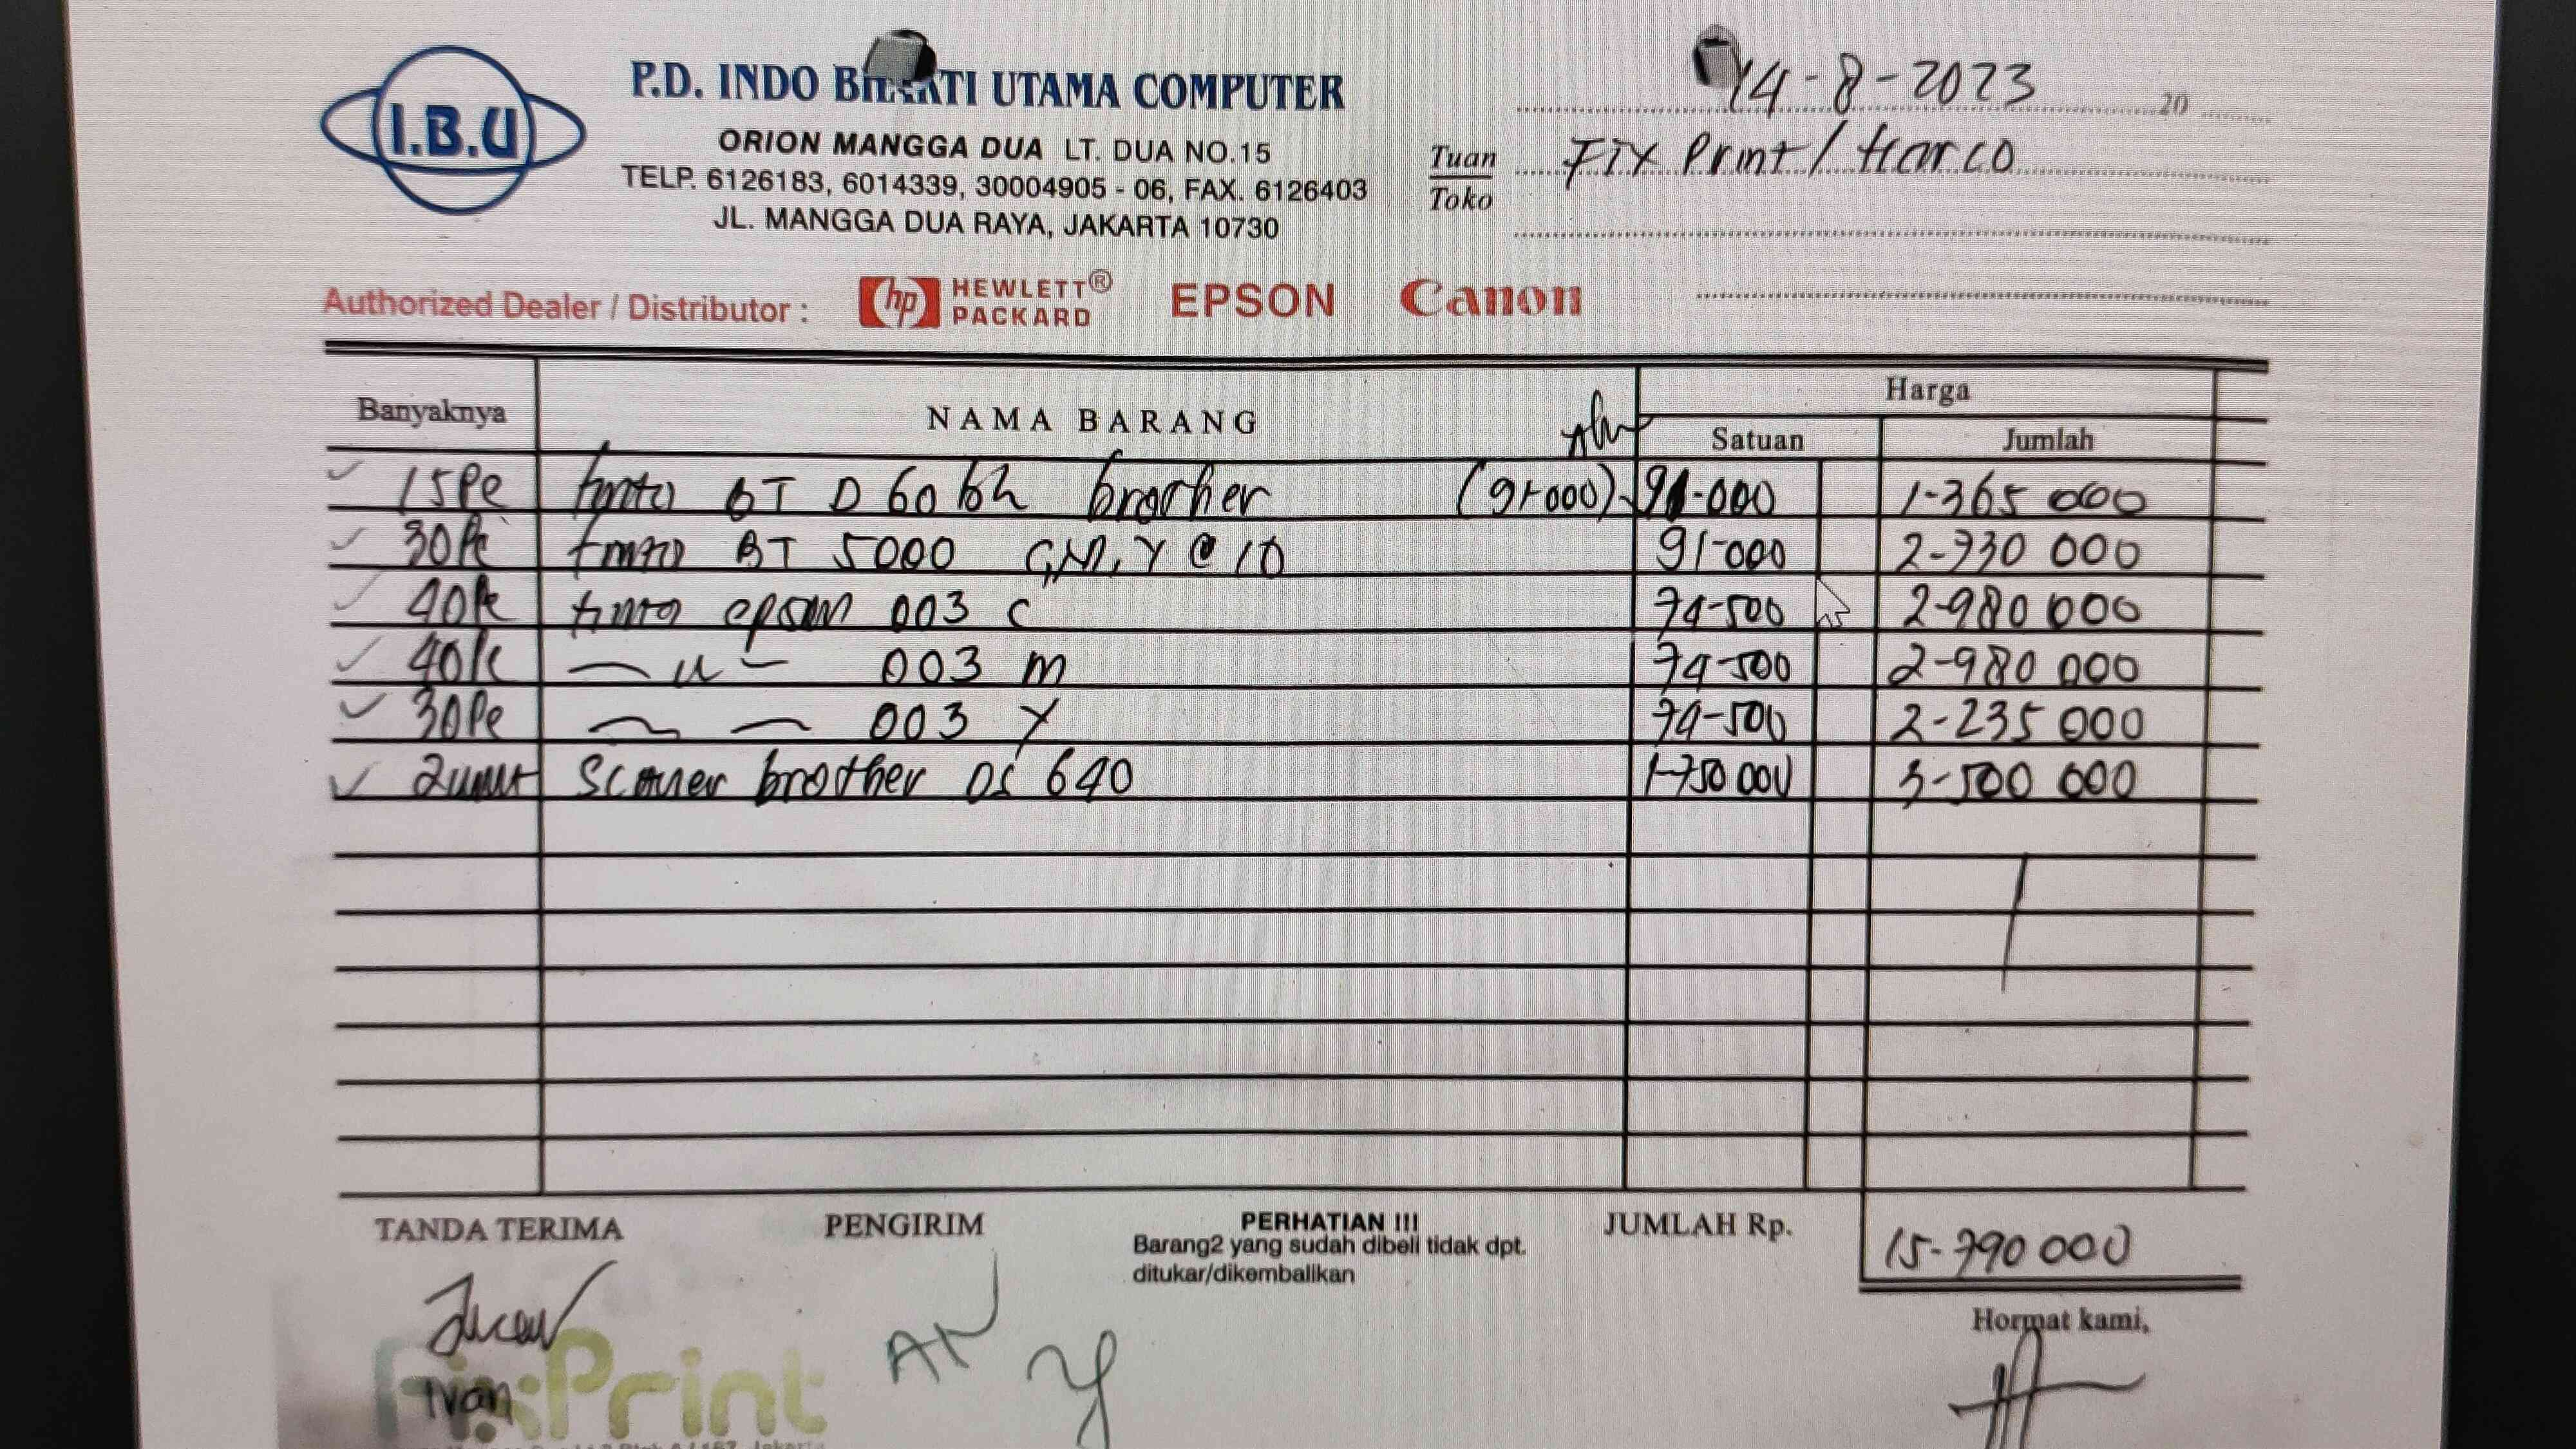 I.B.U
P.D. INDO BHAKTI UTAMA COMPUTER
ORION MANGGA DUA LT. DUA NO.15
TELP. 6126183, 6014339, 30004905 - 06, FAX. 6126403
JL. MANGGA DUA RAYA, JAKARTA 10730
14-8-2023 20
Tuan Toko Fix Print / Harco
Authorized Dealer / Distributor : hp HEWLETT® PACKARD EPSON Canon
Banyaknya NAMA BARANG Harga
Satuan Jumlah
15Pc tinta BT D60 bk brother (91-000) 91-000 1-365 000
30Pc tinta BT 5000 C,M,Y @ 10 91-000 2-730 000
40Pc tinta epson 003 C 74-500 2-980 000
40Pc — u — 003 m 74-500 2-980 000
30Pc 003 Y 74-500 2-235 000
2unit Scaner brother DS 640 1-750 000 3-500 000
TANDA TERIMA PENGIRIM PERHATIAN !!! JUMLAH Rp. 15-790 000
Barang2 yang sudah dibeli tidak dpt.
ditukar/dikembalikan
Hormat kami,
FixPrint
Ivan